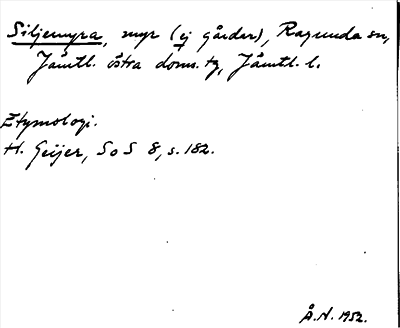 Siljemyra, myr (ej gårdar), Ragunda sn,
Jämtl. östra doms. tg, Jämtl. l.
Etymologi.
H. Geijer, SoS 8, s. 182.
Å.N. 1952.